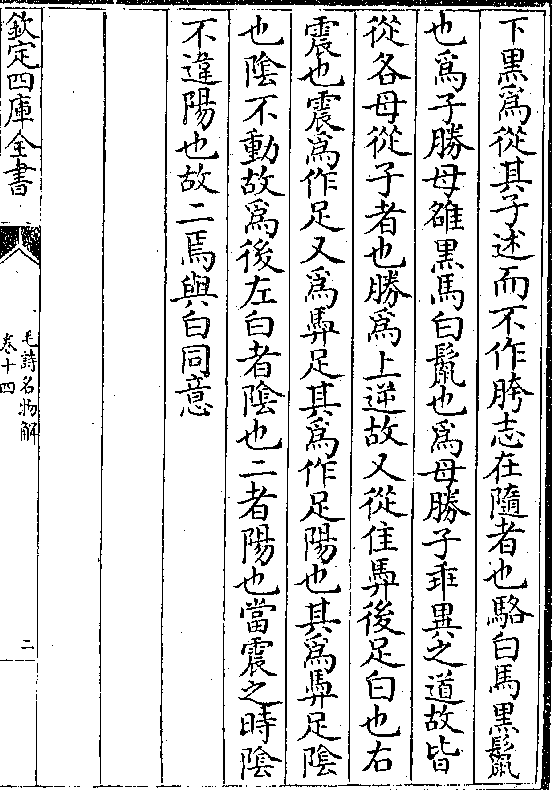 下黒爲從其子述而不作胯志在隨者也駱白馬黒鬛
也爲子勝母雒黒馬白鬛也爲母勝子乖異之道故皆
從各母從子者也勝爲上逆故又從隹馵後足白也右
震也震爲作足又爲馵足其爲作足陽也其爲馵足陰
也陰不動故爲後左白者陰也二者陽也當震之時陰
不違陽也故二焉與白同意
欽定四庫全書
毛詩名物解
卷十四
二